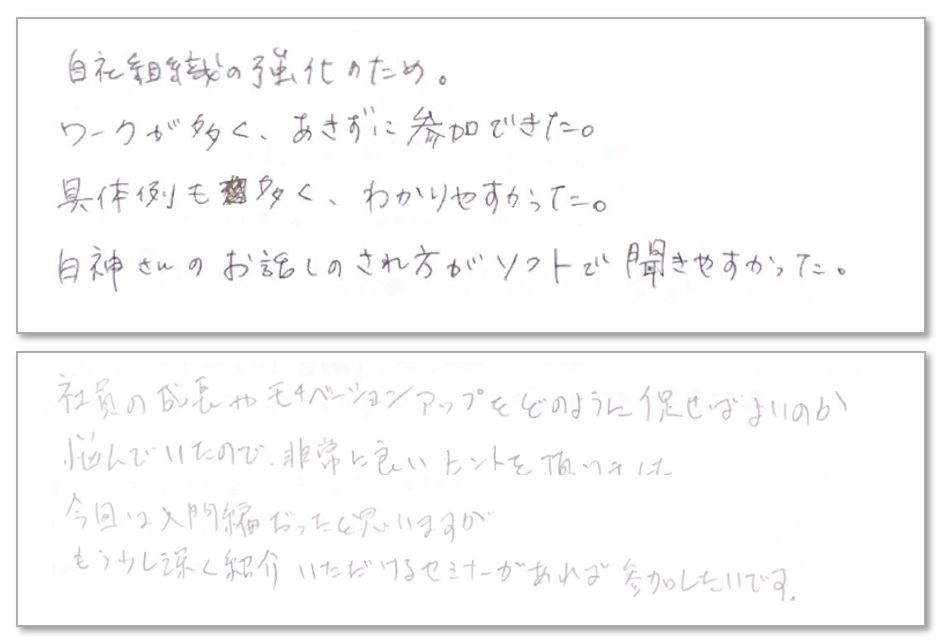 自社組織の強化のため。
ワークが多く、あきずに参加できた。
具体例も多く、わかりやすかった。
白神さんのお話しのされ方がソフトで聞きやすかった。
社員の成長やモチベーションアップをどのように促せばよいのか
悩んでいたので、非常に良いヒントを頂けました
今回は入門編だったと思いますが
もう少し深く紹介いただけるセミナーがあれば参加したいです.